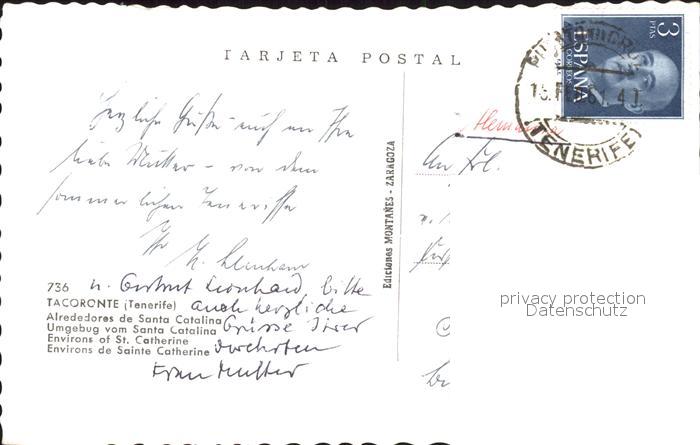 TARJETA POSTAL
3
PTAS
CORREOS
ESPAÑA
15. FEB 61. 4 T
(TENERIFE)
Herzliche Grüße auch an Ihre
liebe Mutter - von dem
sommerlichen Teneriffa
Ihr
An Frl.
Ediciones MONTAÑES - ZARAGOZA
736 u. Gertrud Leonhard, bitte
TACORONTE (Tenerife) auch herzliche
Alrededores de Santa Catalina Grüsse Ihrer
Umgebug vom Santa Catalina
Environs of St. Catherine verehrten
Environs de Sainte Catherine
Frau Mutter
privacy protection
Datenschutz